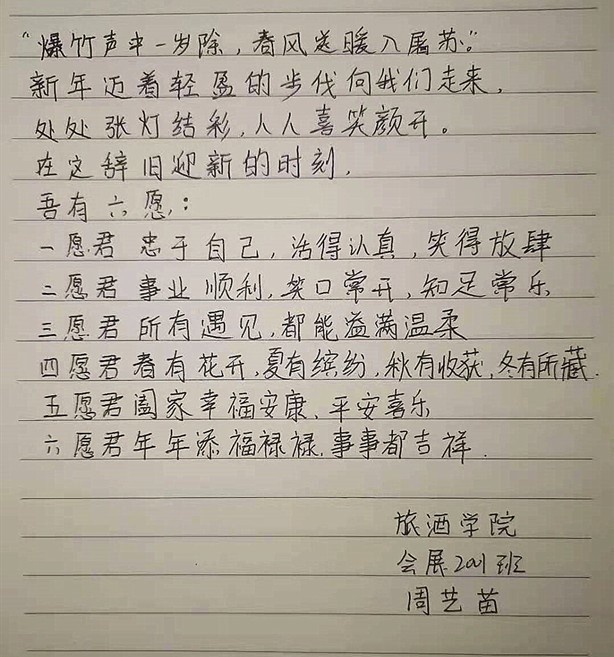 “爆竹声中一岁除，春风送暖入屠苏。”
新年迈着轻盈的步伐向我们走来，
处处张灯结彩，人人喜笑颜开。
在这辞旧迎新的时刻，
吾有六愿：
一愿君 忠于自己，活得认真，笑得放肆
二愿君 事业顺利，笑口常开，知足常乐
三愿君 所有遇见，都能溢满温柔
四愿君 春有花开，夏有缤纷，秋有收获，冬有所藏.
五愿君阖家幸福安康、平安喜乐
六愿君年年添福禄禄，事事都吉祥.
旅酒学院
会展2001班
周艺苗